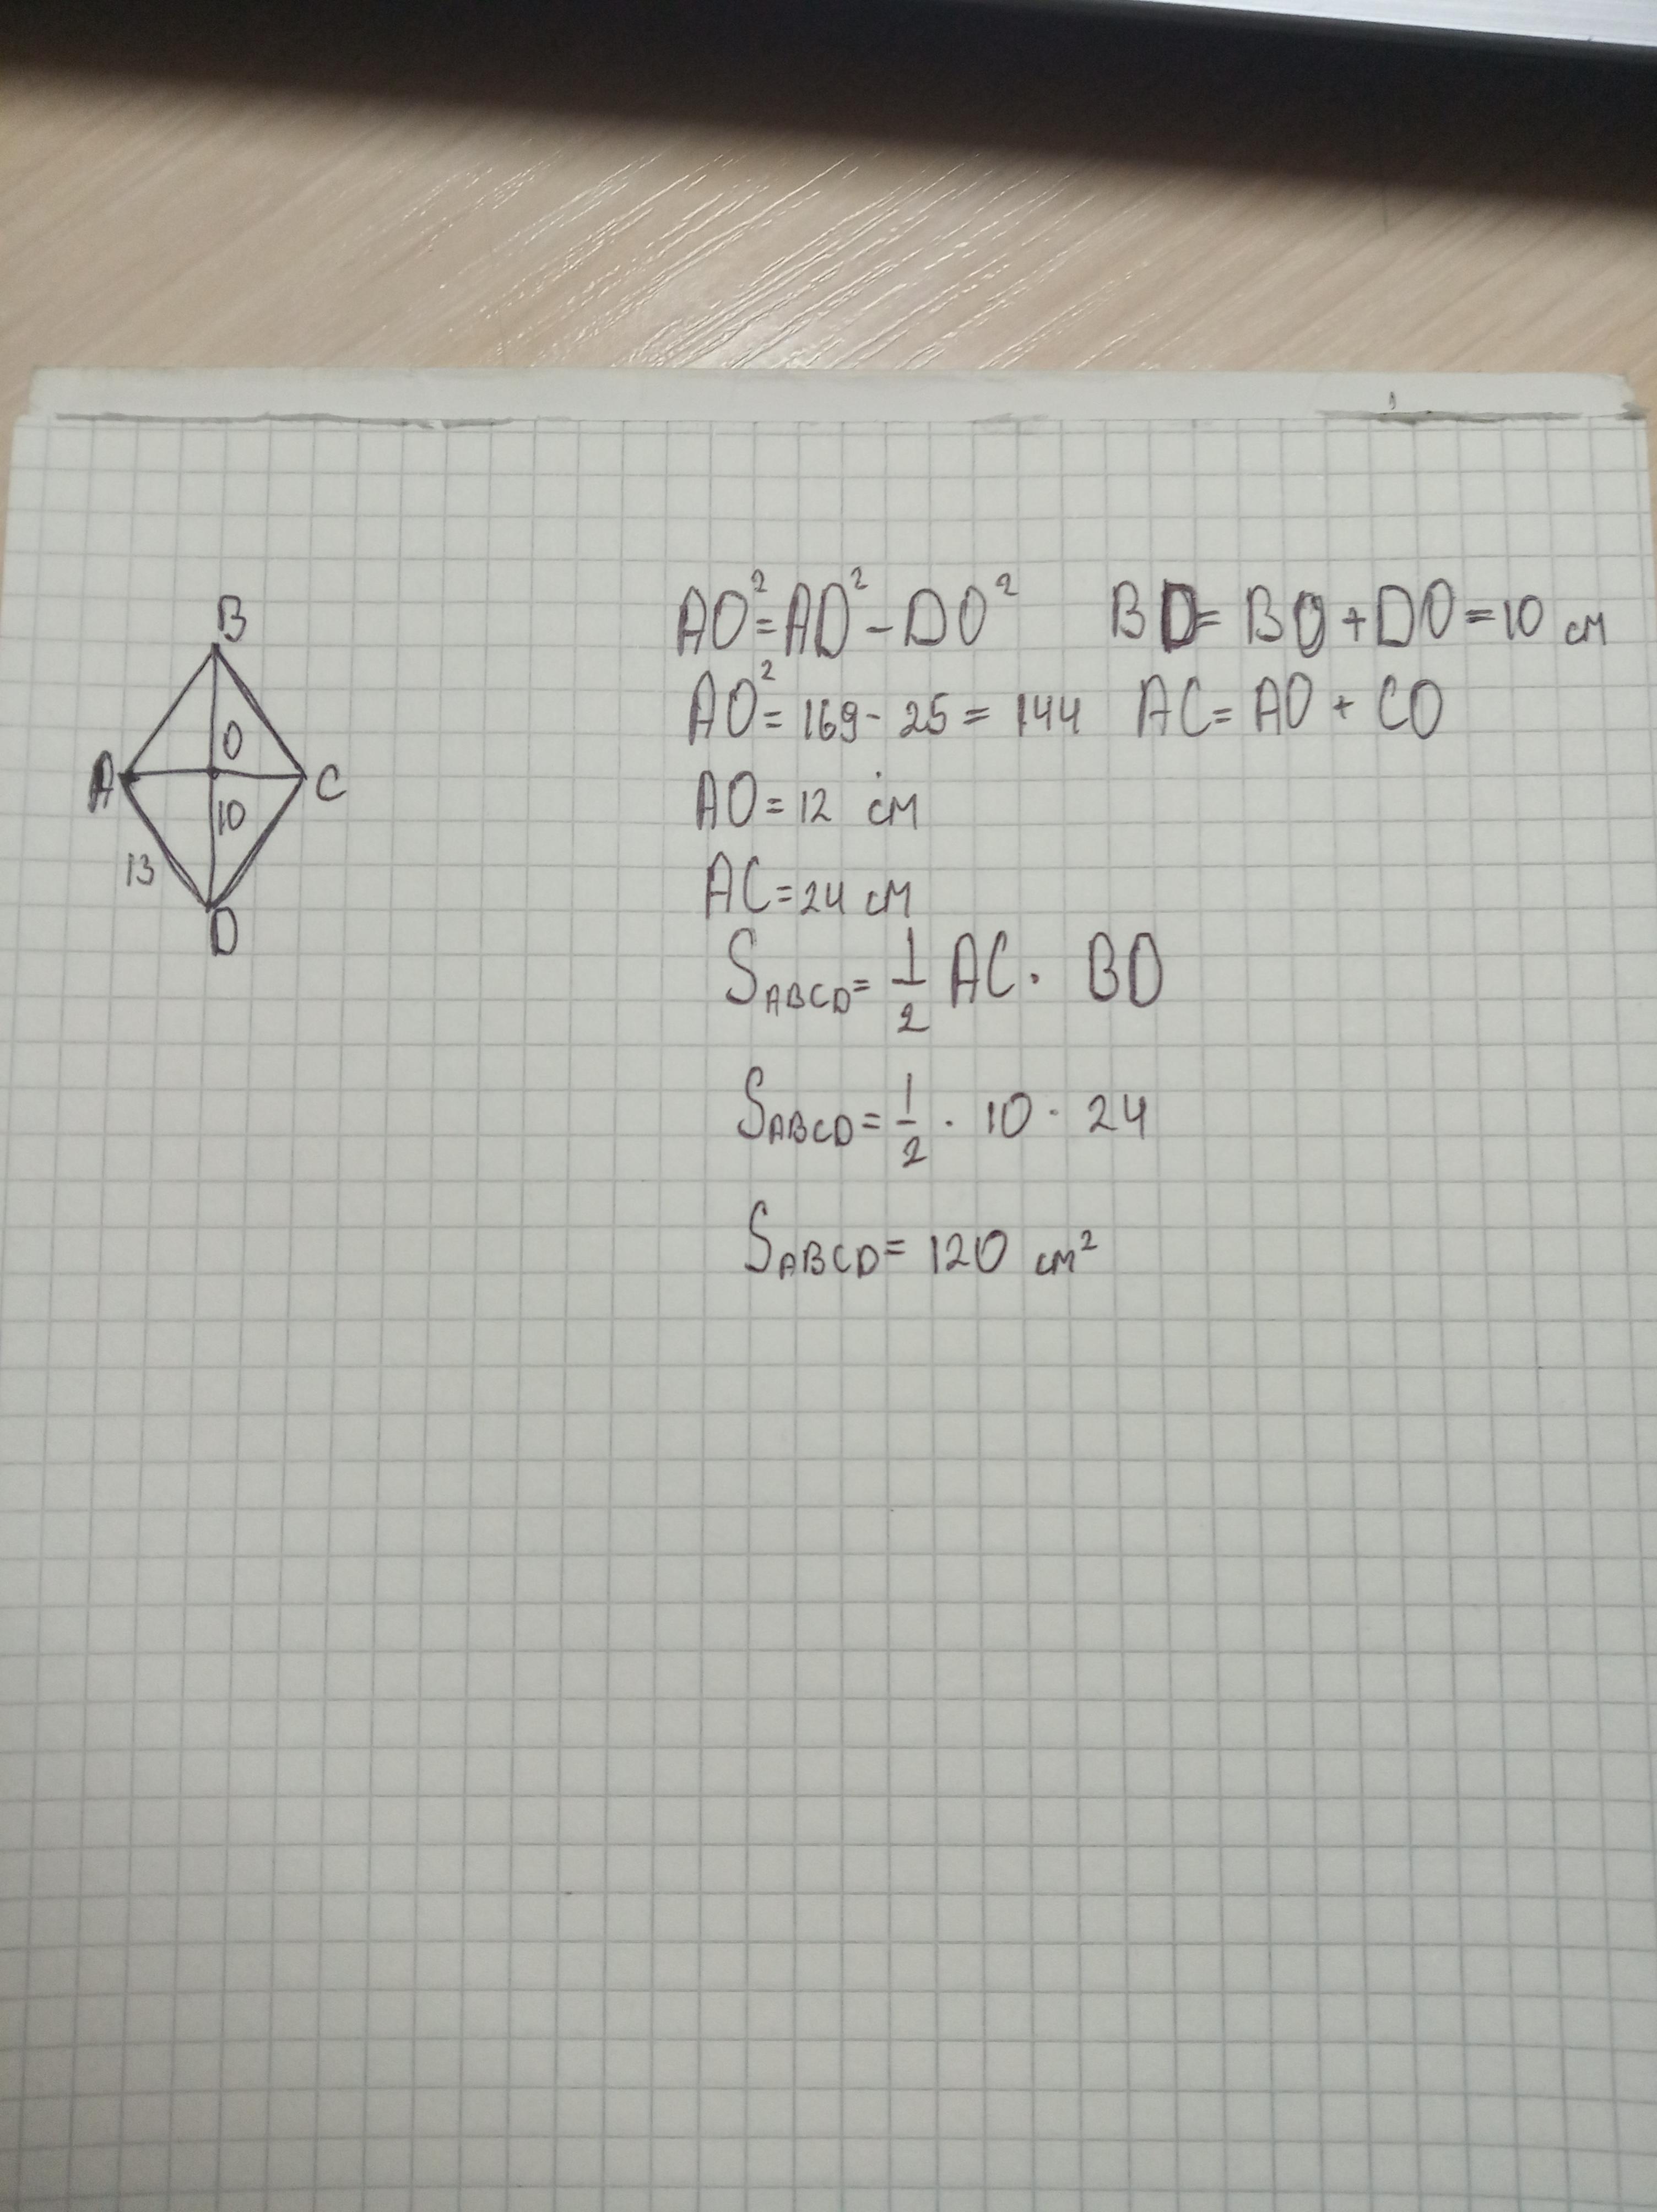 B
O
A
C
10
13
D
AO²=AD²-DO² BD=BO+DO=10 см
AO²=169-25=144 AC=AO+CO
AO=12 см
AC=24 см
S_ABCD=1/2 AC·BD
S_ABCD=1/2·10·24
S_ABCD=120 см²